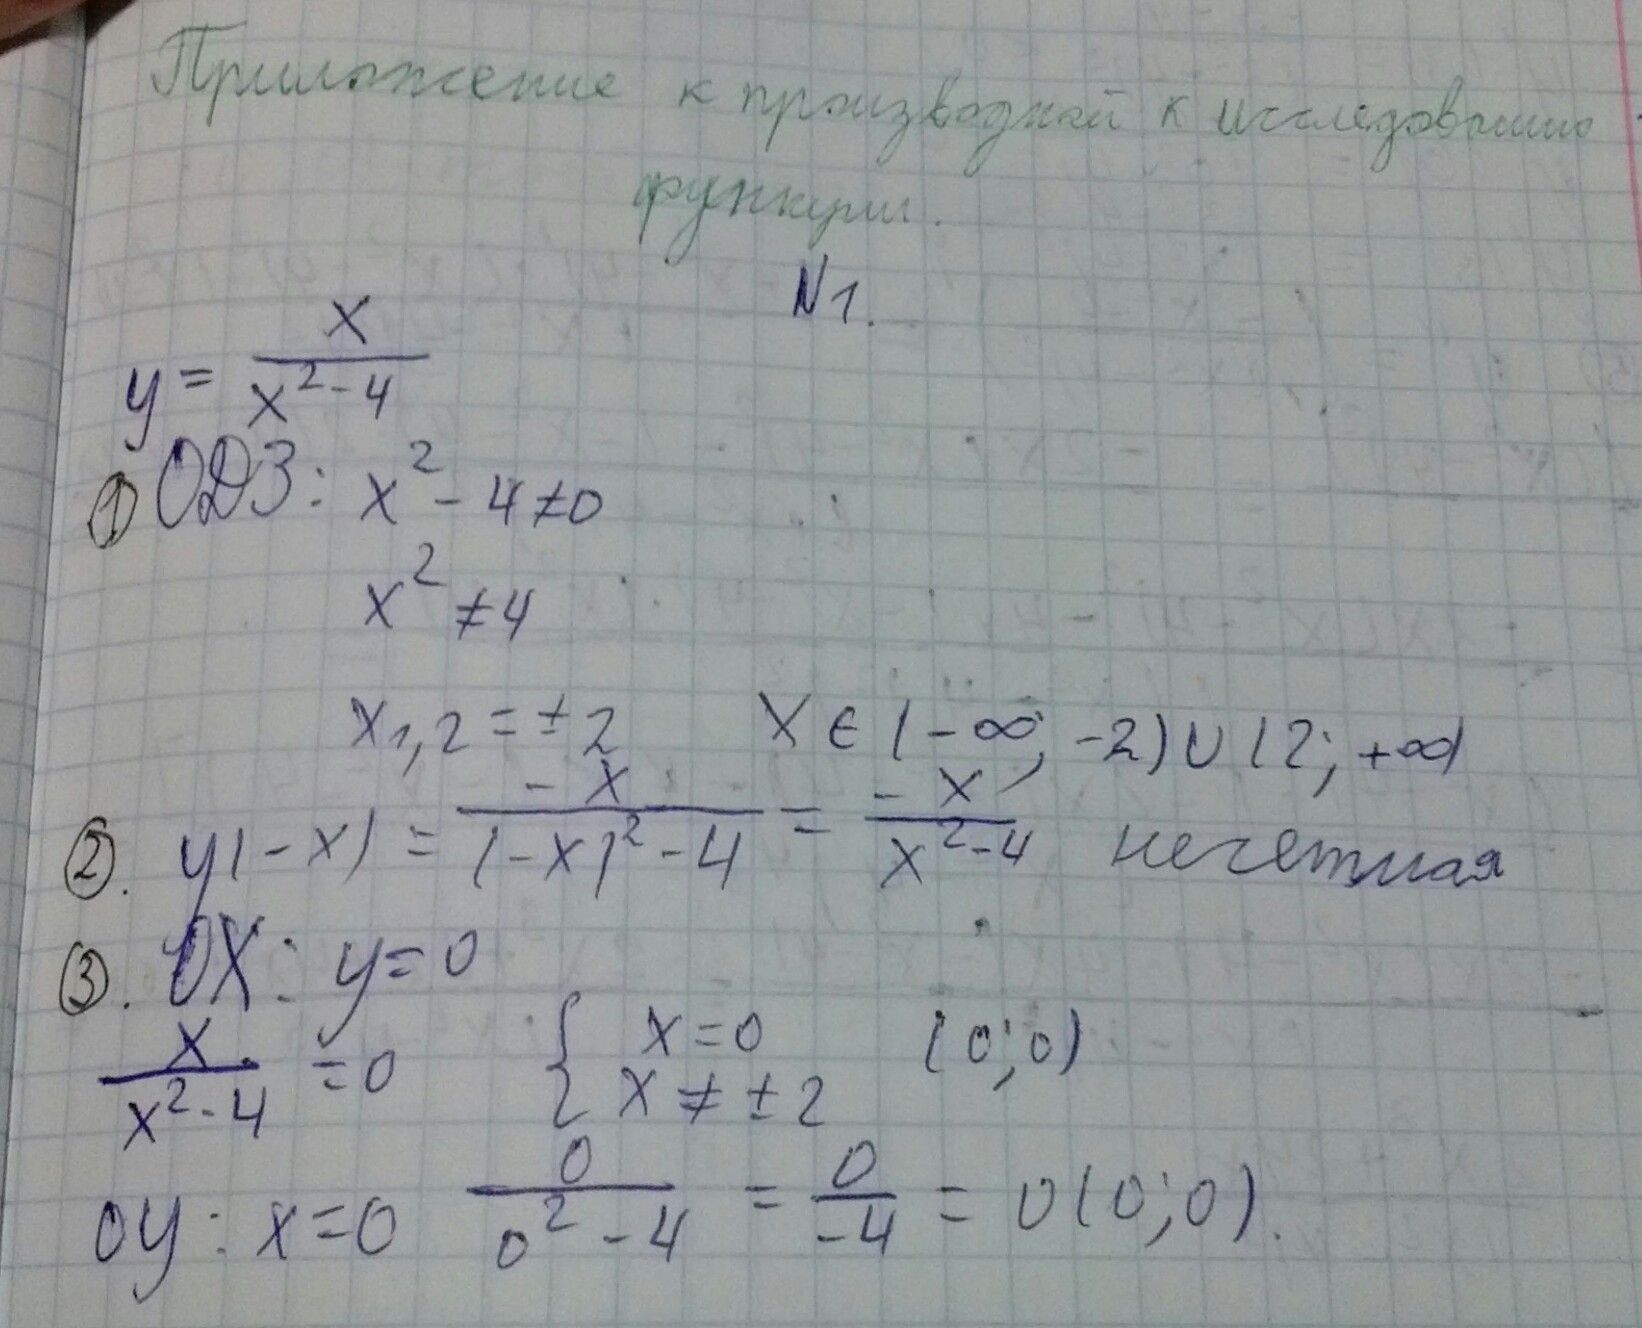 Приложение к производной к исследованию
функции.
N1.
y = x / (x² - 4)
① ОДЗ: x² - 4 ≠ 0
x² ≠ 4
x₁,₂ = ± 2 x ∈ (-∞; -2) ∪ (2; +∞)
②. y(-x) = -x / ((-x)² - 4) = -x / (x² - 4) нечетная
③. OX: y = 0
x / (x² - 4) = 0 { x = 0 x ≠ ± 2 (0; 0)
OY: x = 0 0 / (0² - 4) = 0 / -4 = 0 (0; 0).